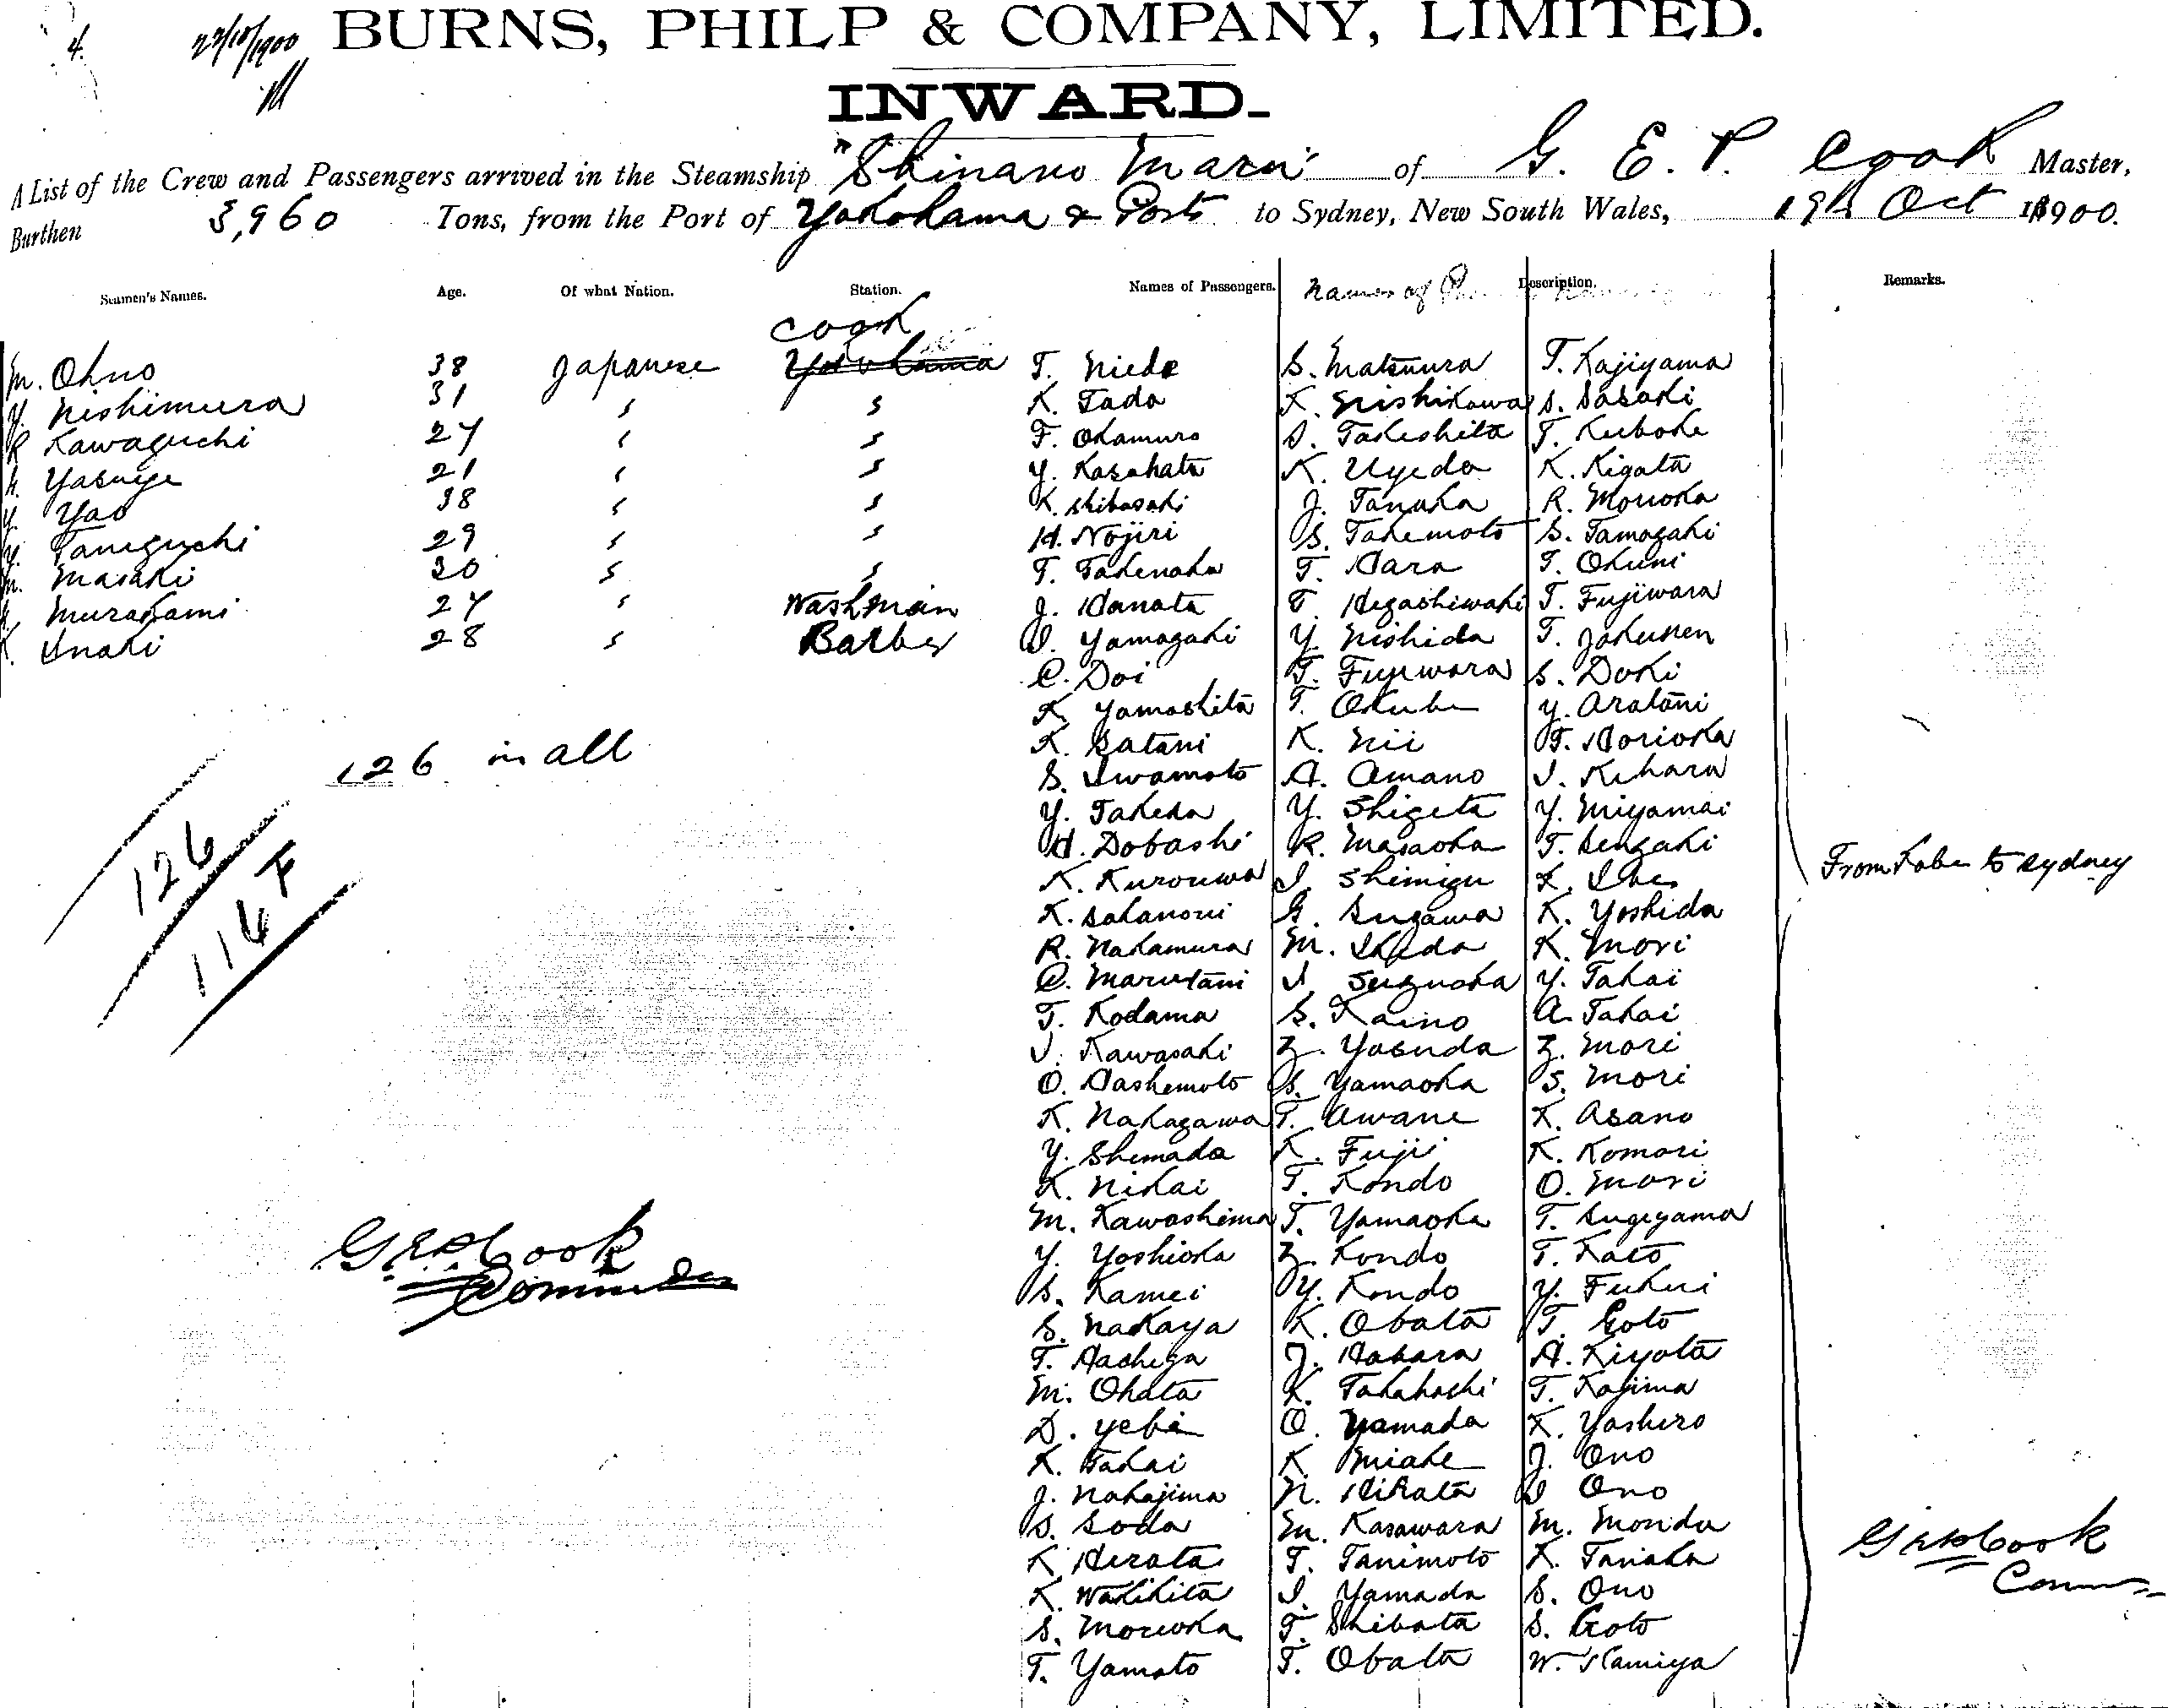 4. 22/10/1900 BURNS, PHILP & COMPANY, LIMITED.
INWARD.
A List of the Crew and Passengers arrived in the Steamship "Shinano Maru" of G. E. P. Cook Master,
Burthen 3,960 Tons, from the Port of Yokohama & Ports to Sydney, New South Wales, 19th Oct 1900.
Seamen's Names. Age. Of what Nation. Station. Names of Passengers. Names of Description. Remarks.
Cook
M. Ohno 38 Japanese Yokohama T. Niede S. Matsuura T. Kajiyama
Y. Nishimura 31 " " K. Tada K. Nishikawa S. Sasaki
R Kawaguchi 27 " " F. Okamura S. Takeshita T. Kuboke
Yasuye 21 " " Y. Kasahata K. Uyeda K. Kigata
Y. Yao 38 " " K. Shibasaki J. Tanaka R. Morioka
Taneguchi 29 " " H. Nojiri S. Takemoto S. Tamagaki
Masaki 30 " " T. Takenaka T. Hara T. Okuni
Murakami 27 " Washman J. Hanata T. Higashiwaki T. Fujiwara
K. Inaki 28 " Barber I. Yamagaki Y. Nishida T. Jakunen
C. Doi T. Fujiwara S. Doki
K. Yamashita T. Okubo Y. Aratani
126 in all K. Satani K. Nii T. Horioka
S. Iwamoto A. Amano I. Kihara
Y. Takeda Y. Shigeta Y. Miyamai
126 H. Dobashi R. Masaoka T. Kengaki
116 F K. Kurouwa I. Shimizu K. From Kobe to Sydney
K. Sakanoui G. Sugawa K. Yoshida
R. Nakamura M. Ikeda K. Mori
C. Marutani I. Suguoka Y. Takai
T. Kodama S. Kaino A. Takai
I. Kawasaki Z. Yasuda Z. Mori
O. Hashemoto S. Yamaoka S. Mori
K. Nakagawa T. Awane K. Asano
Y. Shemada K. Fuji K. Komori
K. Nikai T. Kondo O. Mori
M. Kawashima T. Yamaoka T. Sugiyama
Y. Yoshioka Z. Kondo T. Kato
G.E.P. Cook S. Kamei Y. Kondo Y. Fukui
Commander S. Nakaya K. Obata T. Goto
T. Hachiga J. Habara A. Kiyota
M. Ohata K. Takahashi T. Kajima
D. Yebi O. Yamada K. Yashiro
K. Takai K. Miake J. Ono
J. Nakajima N. Hirata I Ono
S. Soda M. Kasawara M. Monda
K Herata T. Tanimoto K. Tanaka G.E.P. Cook
K. Wakikita I. Yamada S. Ono Comm
S. Morioka T. Shibata S. Goto
T. Yamato T. Obata W. Kamiya